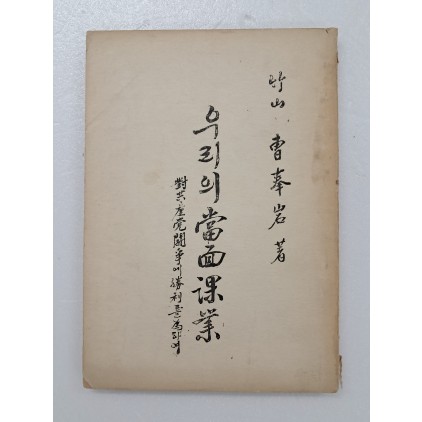 竹山 曺奉岩 著
우리의 當面課業
對共産党鬪爭에 勝利를 爲하여